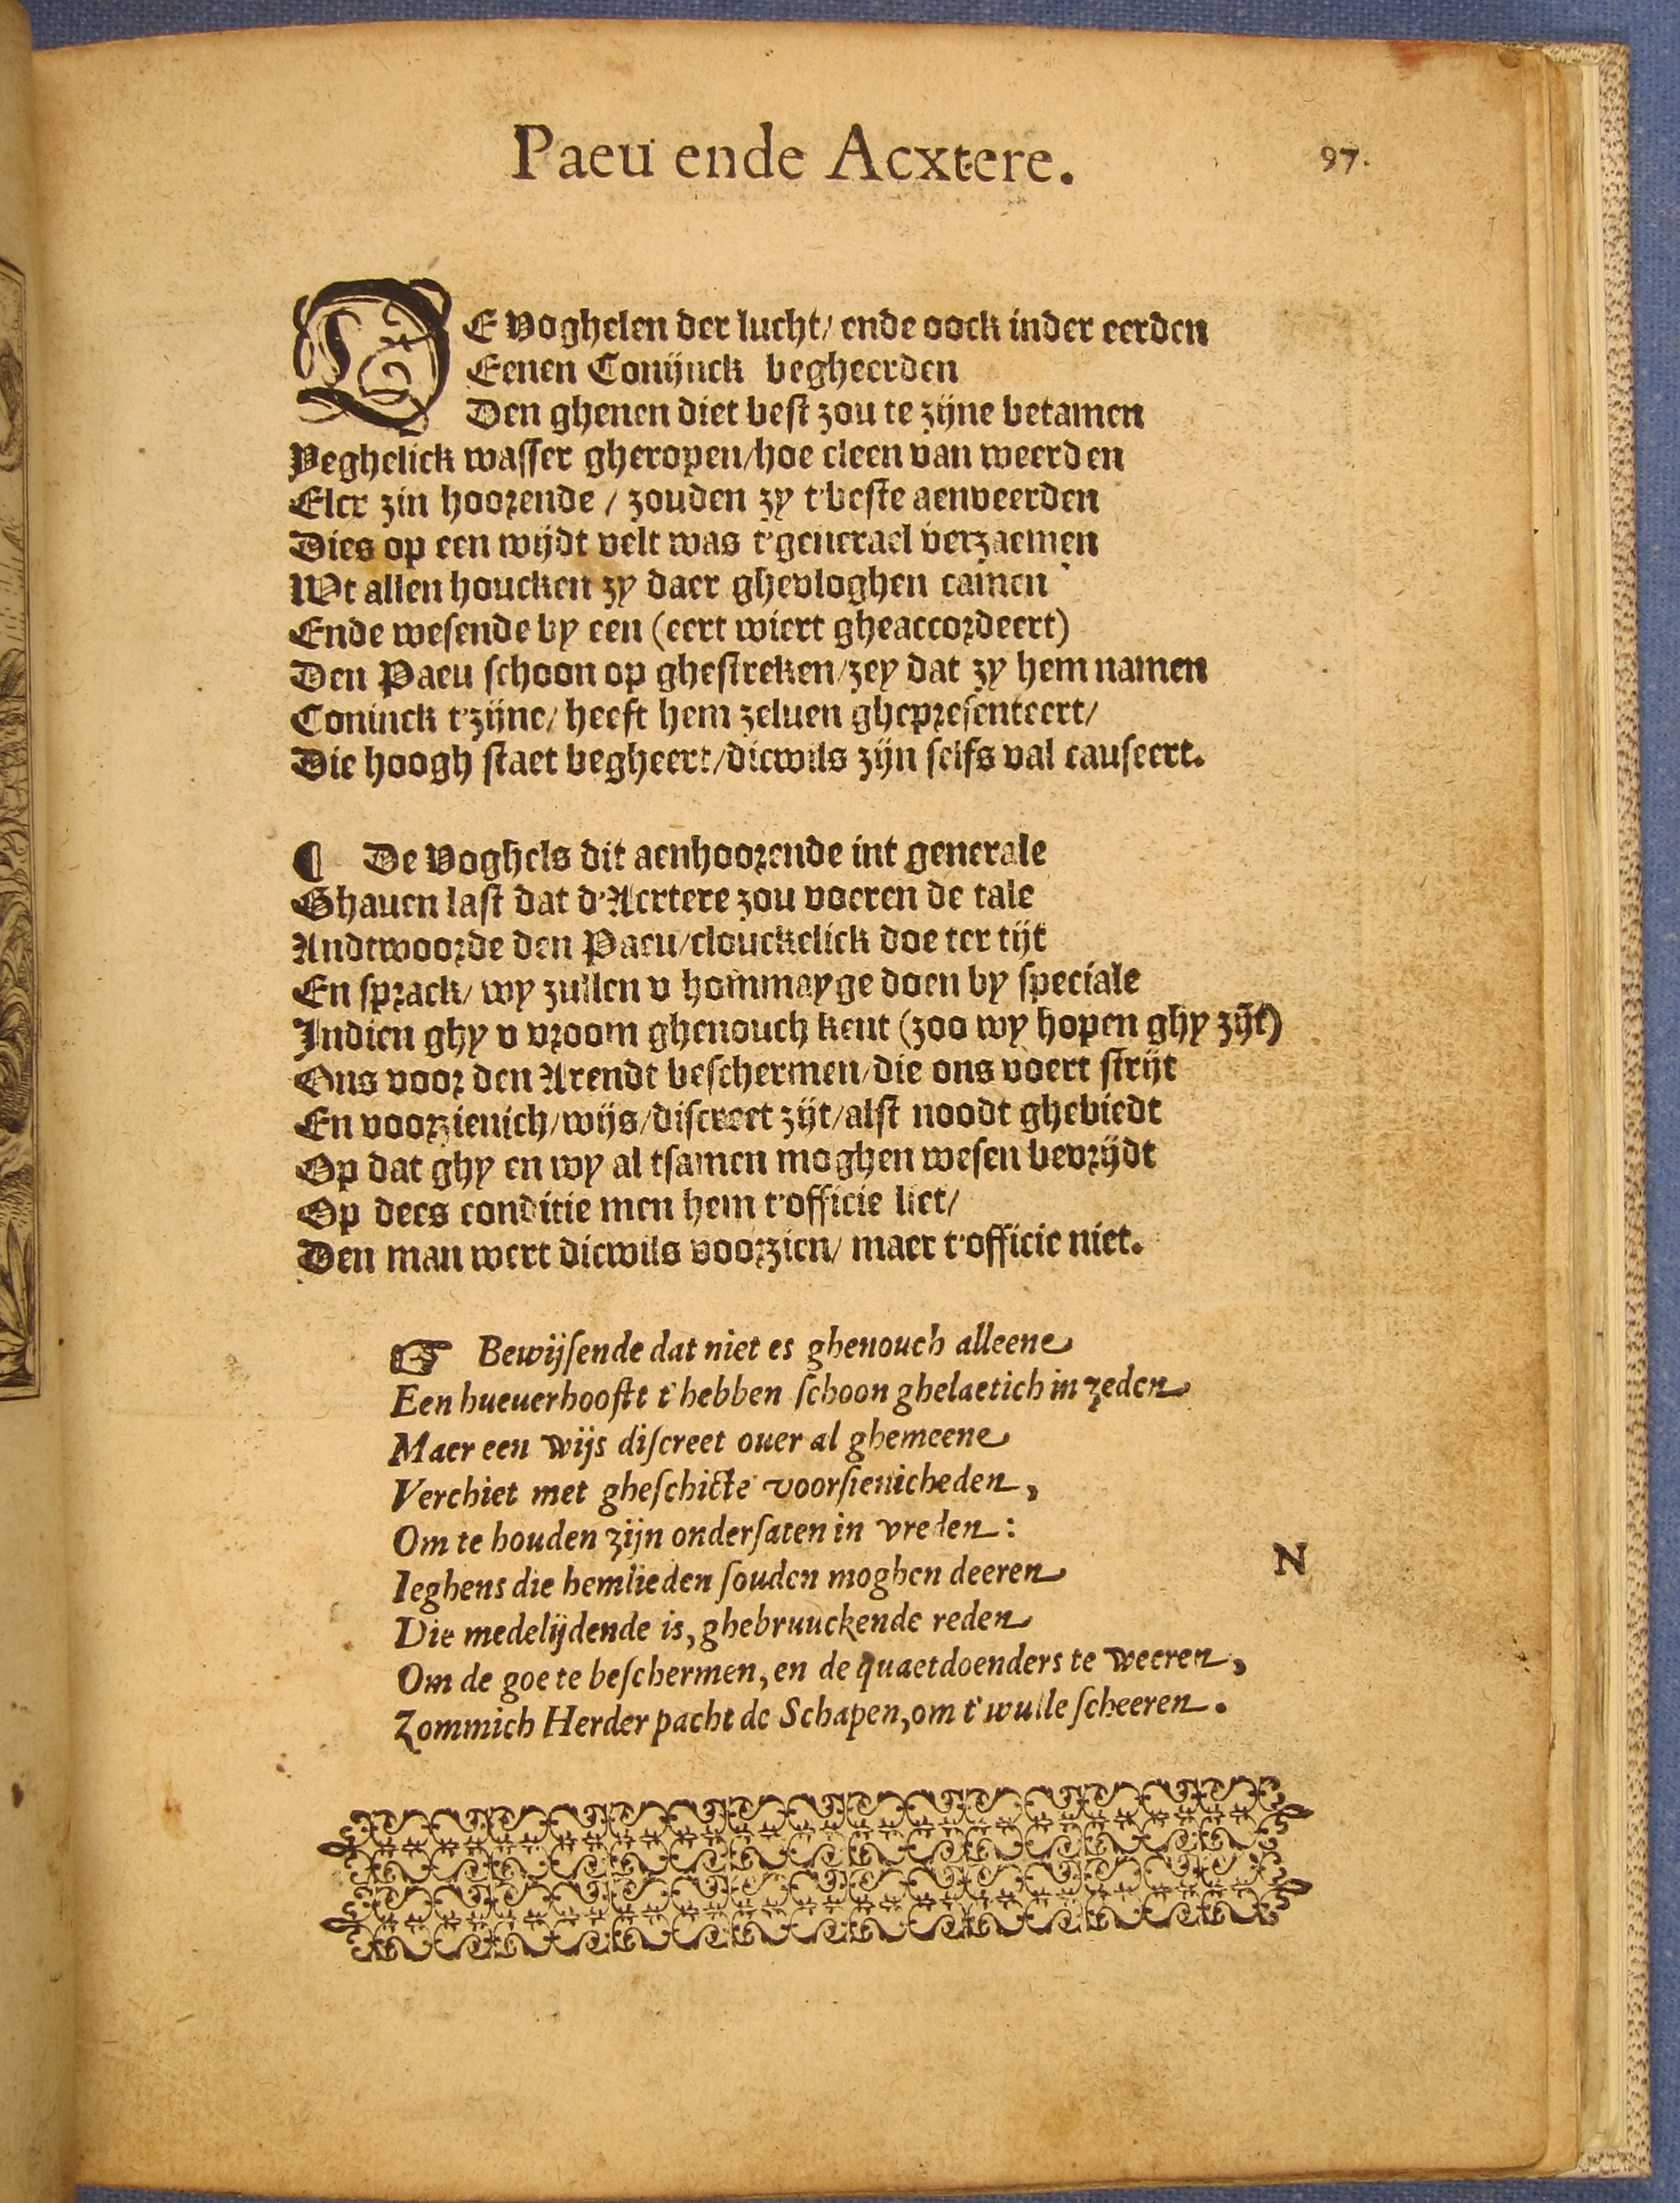 Paeu ende Acxtere.
97.
DE voghelen der lucht/ ende oock inder eerden
Eenen Conijnck begheerden
Den ghenen diet best zou te zijne betamen
Yeghelick wasser gheropen/hoe cleen van weerden
Elcx zin hoorende / zouden zy t'beste aenveerden
Dies op een wijdt velt was t'generael verzaemen
Wt allen houcken zy daer ghevloghen camen
Ende wesende by een (eert wiert gheaccordeert)
Den Paeu schoon op ghestreken/zey dat zy hem namen
Coninck t'zijne/ heeft hem zeluen ghepresenteert/
Die hoogh staet begheert/dicwils zijn selfs val causeert.
¶ De Voghels dit aenhoorende int generale
Ghauen last dat d'Aextere zou voeren de tale
Andtwoorde den Paeu/clouckelick doe ter tijt
En sprack/ wy zullen v hommayge doen by speciale
Indien ghy v vroom ghenouch kent (zoo wy hopen ghy zijt)
Ons voor den Arendt beschermen/die ons voert strijt
En voorzienich/wijs/discreet zijt/alst noodt ghebiedt
Op dat ghy en wy al tsamen moghen wesen bevrijdt
Op dees conditie men hem t'officie liet/
Den man wert dicwils voorzien/ maer t'officie niet.
☞ Bewijsende dat niet es ghenouch alleene
Een hueuerhooftt t'hebben schoon ghelaetich in zeden
Maer een wijs discreet ouer al ghemeene
Verchiet met gheschicte voorsienicheden,
Om te houden zijn ondersaten in vreden:
Ieghens die hemlieden souden moghen deeren
Die medelijdende is, ghebruuckende reden
Om de goe te beschermen, en de quaetdoenders te weeren,
Zommich Herder pacht de Schapen, om t'wulle scheeren.
N